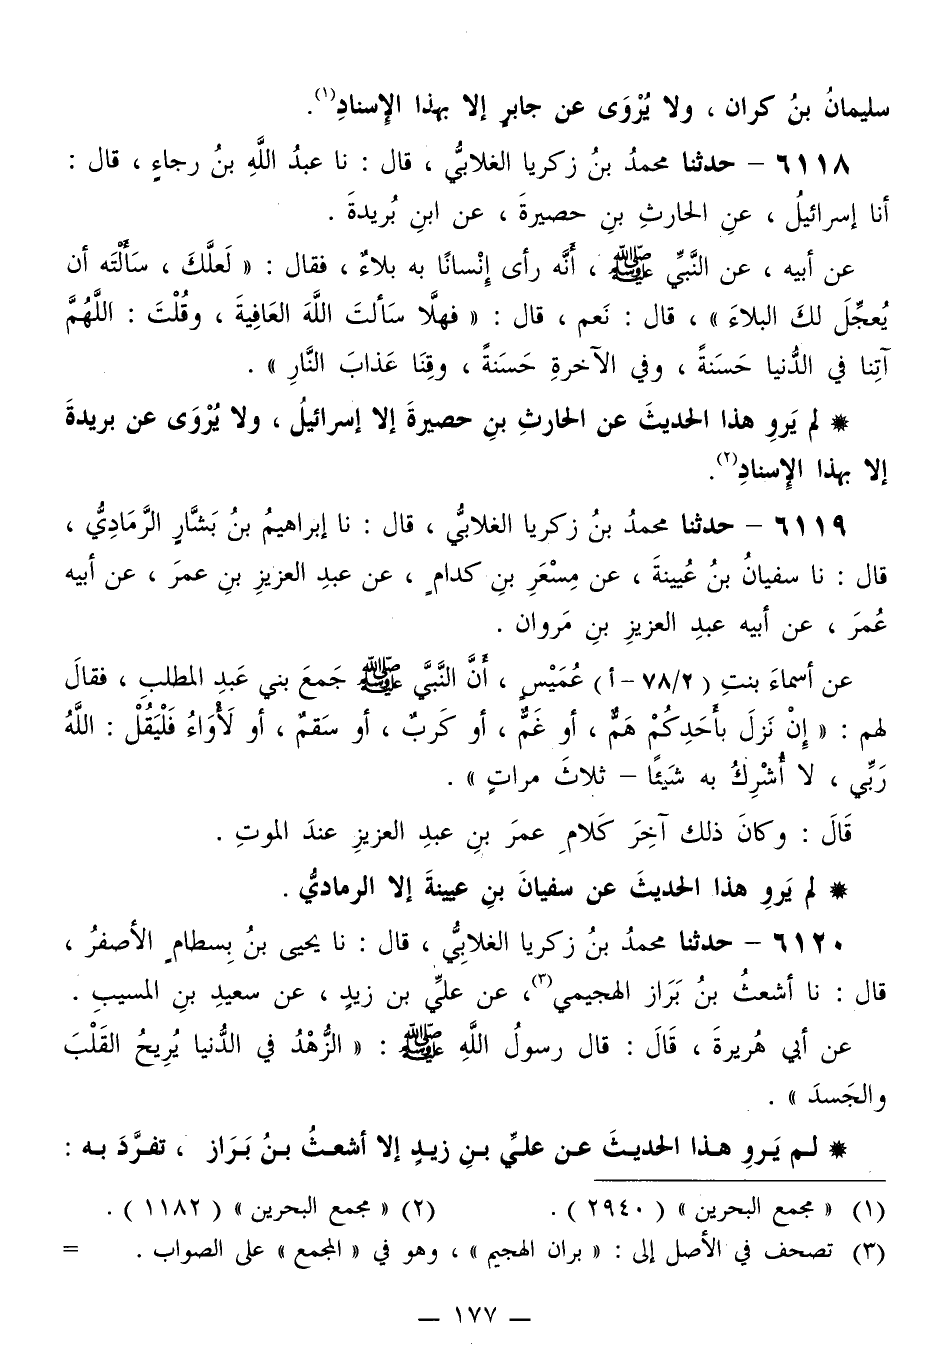 سليمانُ بنُ كران ، ولا يُرْوَى عن جابرٍ إلا بهذا الإِسنادِ(١).
٦١١٨ – حدثنا محمدُ بنُ زكريا الغلابيُّ ، قال : نا عبدُ اللَّهِ بنُ رجاءٍ ، قال :
أنا إسرائيلُ ، عنِ الحارثِ بنِ حصيرةَ ، عن ابنِ بُريدةَ .
عن أبيه ، عن النَّبيِّ ﷺ ، أَنَّه رأى إِنْسانًا به بلاءٌ ، فقال : « لَعلَّكَ ، سَأَلْتَه أن
يُعجِّلَ لكَ البلاءَ » ، قال : نَعم ، قال : « فهلَّا سَألتَ اللَّهَ العَافِيةَ ، وقُلْتَ : اللَّهُمَّ
آتِنا في الدُّنيا حَسَنةً ، وفي الآخرةِ حَسَنةً ، وقِنَا عَذابَ النَّارِ » .
* لم يَروِ هذا الحديثَ عن الحارثِ بنِ حصيرةَ إلا إسرائيلُ ، ولا يُرْوَى عن بريدةَ
إلا بهذا الإِسنادِ(٢).
٦١١٩ – حدثنا محمدُ بنُ زكريا الغلابيُّ ، قال : نا إبراهيمُ بنُ بَشَّارٍ الرَّمَاديُّ ،
قال : نا سفيانُ بنُ عُيينةَ ، عن مِسْعَرِ بنِ كدامٍ ، عن عبدِ العزيزِ بنِ عمرَ ، عن أبيه
عُمرَ ، عن أبيه عبدِ العزيزِ بنِ مَروان .
عن أسماءَ بنتِ ( ٧٨/٢ – أ ) عُمَيْسٍ ، أَنَّ النَّبيَّ ﷺ جَمعَ بني عَبدِ المطلبِ ، فقالَ
لهم : « إِنْ نَزلَ بأَحَدِكُمْ هَمٌّ ، أو غَمٌّ ، أو كَربٌ ، أو سَقمٌ ، أو لَأْوَاءُ فَلْيَقُلْ : اللَّهُ
رَبِّي ، لا أُشْرِكُ به شَيئًا – ثلاثَ مراتٍ » .
قَالَ : وكانَ ذلك آخِرَ كَلامِ عمرَ بنِ عبدِ العزيزِ عندَ الموتِ .
* لم يَروِ هذا الحديثَ عن سفيانَ بنِ عيينةَ إلا الرماديُّ .
٦١٢٠ – حدثنا محمدُ بنُ زكريا الغلابيُّ ، قال : نا يحيى بنُ بِسطامٍ الأصفرُ ،
قال : نا أشعثُ بنُ بَرَاز الهجيمي(٣)، عن عليِّ بن زيدٍ ، عن سعيدِ بنِ المسيبِ .
عن أبي هُريرةَ ، قَالَ : قال رسولُ اللَّهِ ﷺ : « الزُّهْدُ في الدُّنيا يُرِيحُ القَلْبَ
والجَسدَ » .
* لـم يَـروِ هـذا الحديثَ عـن علـيِّ بـنِ زيـدٍ إلا أشعـثُ بـنُ بَـرَاز ، تفـرَّدَ بـه :
(١) « مجمع البحرين » ( ٢٩٤٠ ) . (٢) « مجمع البحرين » ( ١١٨٢ ) .
(٣) تصحف في الأصل إلى : « بران الهجيم » ، وهو في « المجمع » على الصواب . =
— ١٧٧ —